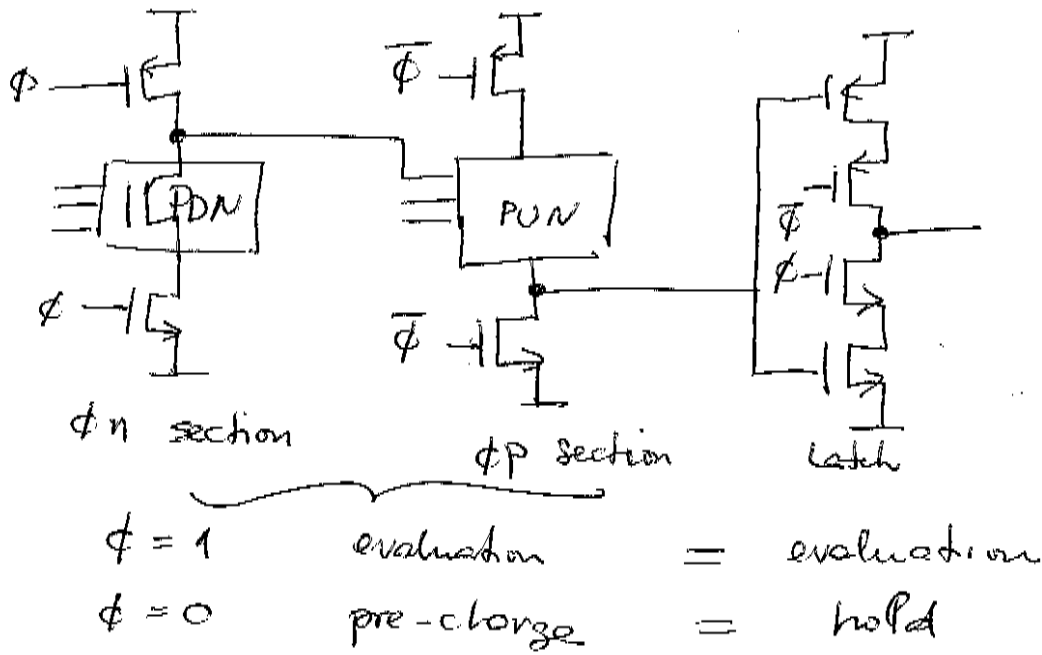 ϕ
ϕ̅
PDN
PUN
ϕ̅
ϕ
ϕ̅
ϕ
ϕn section
ϕp section
Latch
ϕ = 1 evaluation = evaluation
ϕ = 0 pre-charge = hold